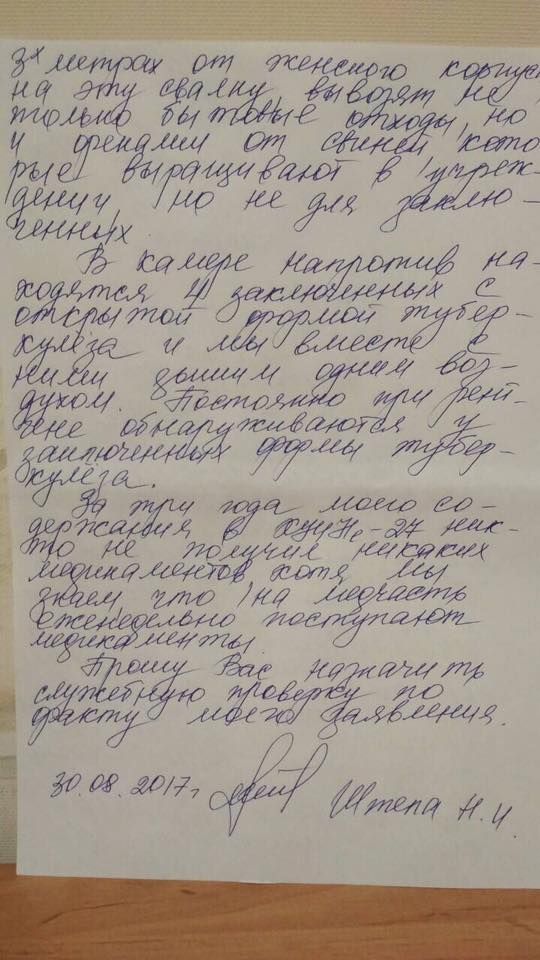 3х метрах от женского корпус
на эту свалку вывозят не
только бытовые отходы, но
и фекалии от свиней, кото
рые выращивают в учреж-
дении но не для заклю-
ченных.
В камере напротив на-
ходятся 4 заключенных с
открытой формой тубер-
кулёза и мы вместе с
ними дышим одним воз-
духом. Постоянно при рент-
гене обнаруживаются у
заключенных формы тубер-
кулёза.
За три года моего со-
держания в ХУИН-27 ник-
то не получил никаких
медикаментов хотя мы
знаем что на медчасть
еженедельно поступают
медикаменты.
Прошу Вас назначить
служебную проверку по
факту моего заявления.
30.08.2017г Штепа Н.И.